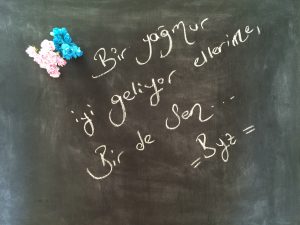 Bir yağmur
iyi geliyor ellerime,
Bir de sen...
= Byz =